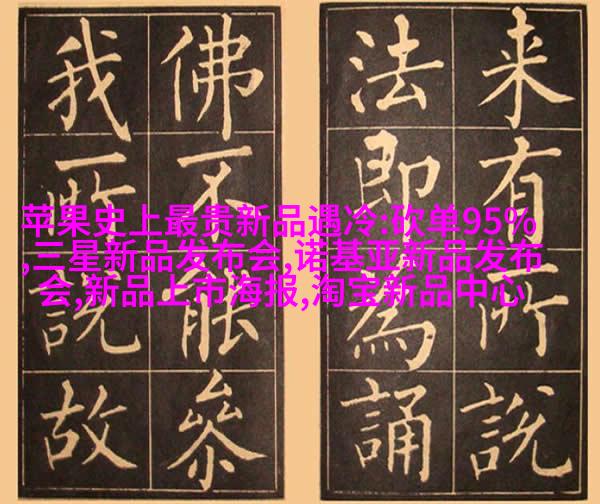 来有所說
法即為誦
佛不能叅
我所說故
苹果史上最贵新品遇冷:砍单95%
,三星新品发布会,诺基亚新品发布
会,新品上市海报,淘宝新品中心